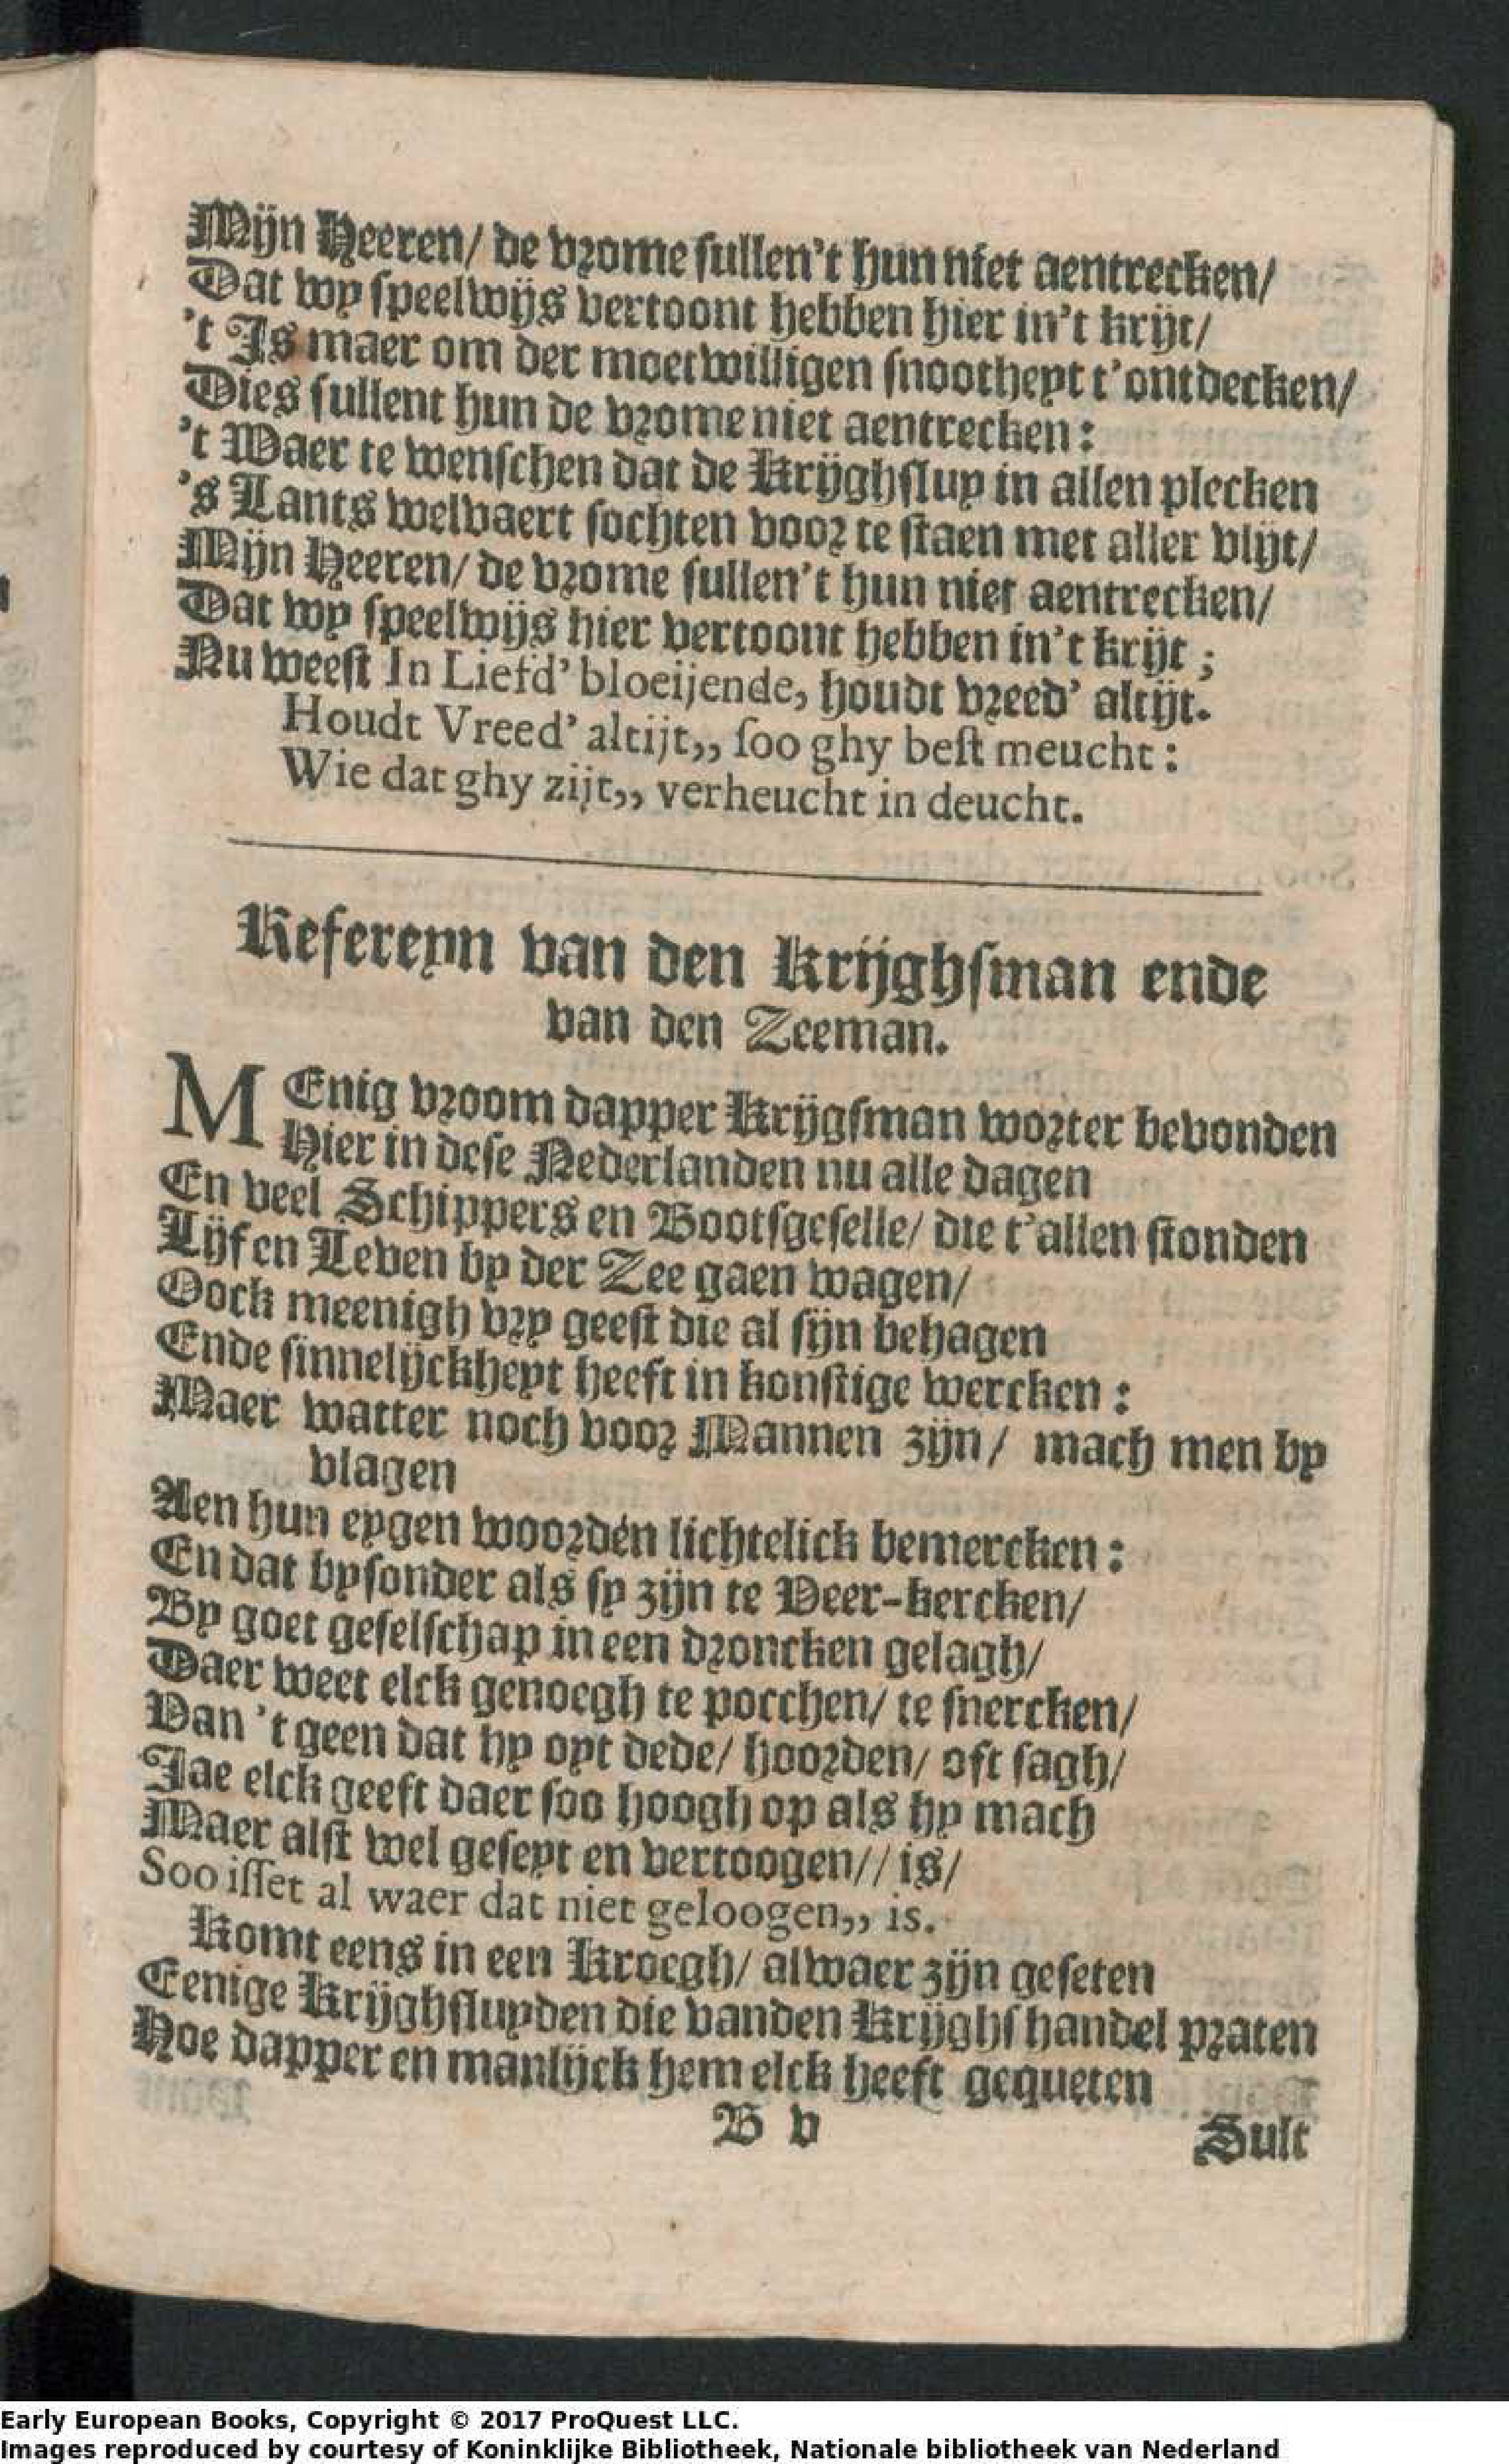 Mijn Heeren/ de vrome sullen't hun niet aentrecken/
Dat wy speelwijs vertoont hebben hier in't krijt/
't Is maer om der moetwilligen snootheyt t'ontdecken/
Dies sullent hun de vrome niet aentrecken:
't Waer te wenschen dat de Krijghsluy in allen plecken
's Lants welvaert sochten voor te staen met aller vlijt/
Mijn Heeren/ de vrome sullen't hun niet aentrecken/
Dat wy speelwijs hier vertoont hebben in't krijt;
Nu weest In Liefd' bloeijende, houdt vreed' altijt.
Houdt Vreed' altijt,, soo ghy best meucht:
Wie dat ghy zijt,, verheucht in deucht.
Refereyn van den Krijghsman ende
van den Zeeman.
MEnig vroom dapper Krijgsman worter bevonden
Hier in dese Nederlanden nu alle dagen
En veel Schippers en Bootsgeselle/ die t'allen stonden
Lijf en Leven by der Zee gaen wagen/
Oock meenigh vry geest die al sijn behagen
Ende sinnelijckheyt heeft in konstige wercken:
Maer watter noch voor Mannen zijn/ mach men by
vlagen
Aen hun eygen woorden lichtelick bemercken:
En dat bysonder als sy zijn te Veer-kercken/
By goet geselschap in een droncken gelagh/
Daer weet elck genoegh te pocchen/ te snercken/
Van 't geen dat hy oyt dede/ hoorden/ oft sagh/
Jae elck geeft daer soo hoogh op als hy mach
Maer alst wel geseyt en vertoogen// is/
Soo isset al waer dat niet geloogen,, is.
Komt eens in een Kroegh/ alwaer zijn geseten
Eenige Krijghsluyden die vanden Krijghs handel praten
Hoe dapper en manlijck hem elck heeft gequeten
B v
Sult
Early European Books, Copyright © 2017 ProQuest LLC.
Images reproduced by courtesy of Koninklijke Bibliotheek, Nationale bibliotheek van Nederland